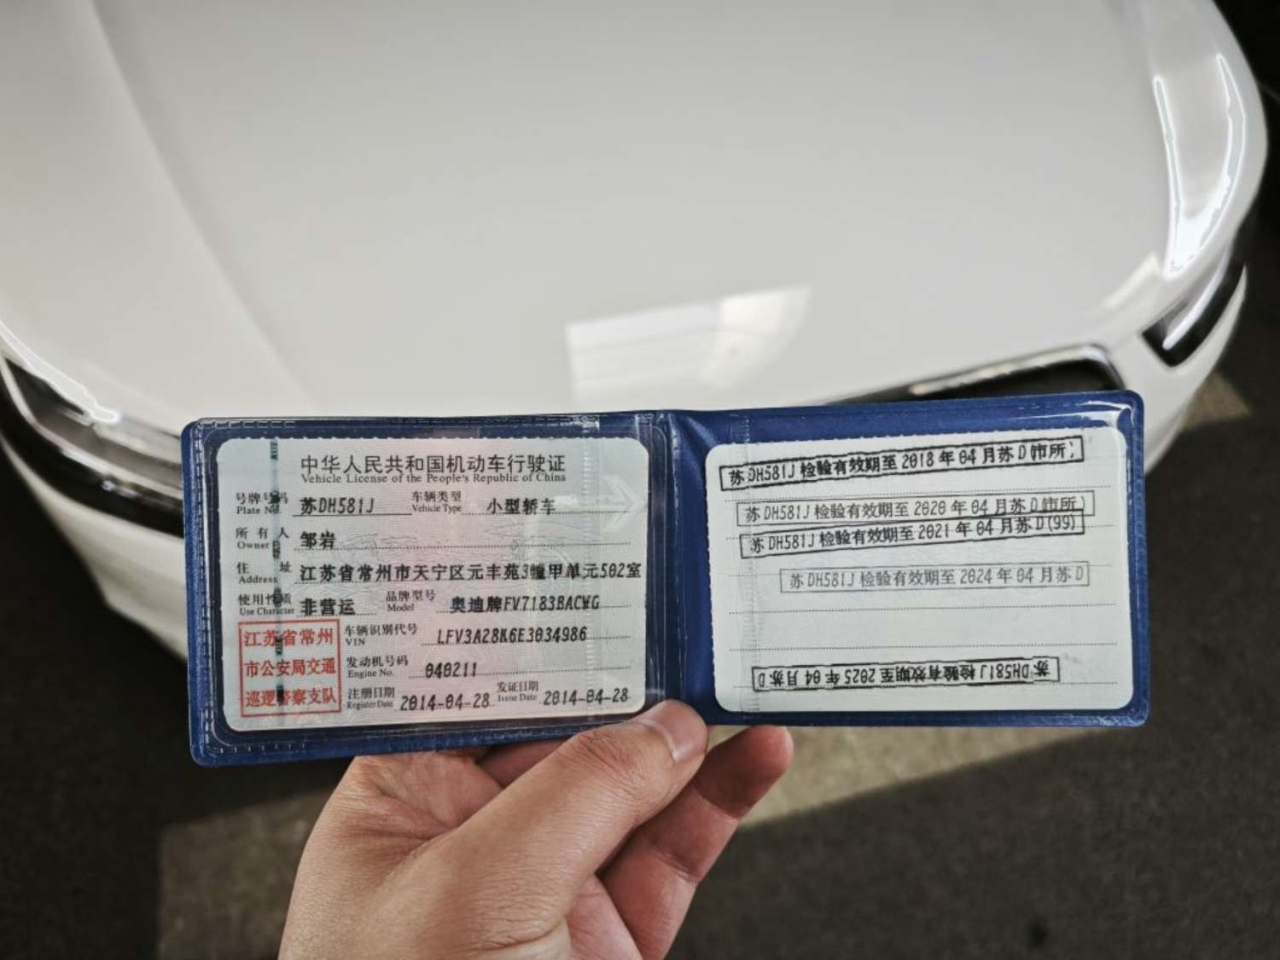 中华人民共和国机动车行驶证
Vehicle License of the People's Republic of China
号牌号码 苏DH581J 车辆类型 小型轿车
Plate No. Vehicle Type
所有人 邹岩
Owner
住址 江苏省常州市天宁区元丰苑3幢甲单元502室
Address
使用性质 非营运 品牌型号 奥迪牌FV7183BACWG
Use Character Model
江苏省常州
市公安局交通
巡逻警察支队
车辆识别代号 LFV3A28K6E3034986
VIN
发动机号码 040211
Engine No.
注册日期 2014-04-28 发证日期 2014-04-28
Register Date Issue Date
苏DH581J 检验有效期至 2018 年 04 月苏 D(市所)
苏DH581J 检验有效期至 2020 年 04 月苏 D(市所)
苏DH581J 检验有效期至 2021 年 04 月苏 D(99)
苏DH581J 检验有效期至 2024 年 04 月苏 D
苏DH581J 检验有效期至 2025 年 04 月苏 D